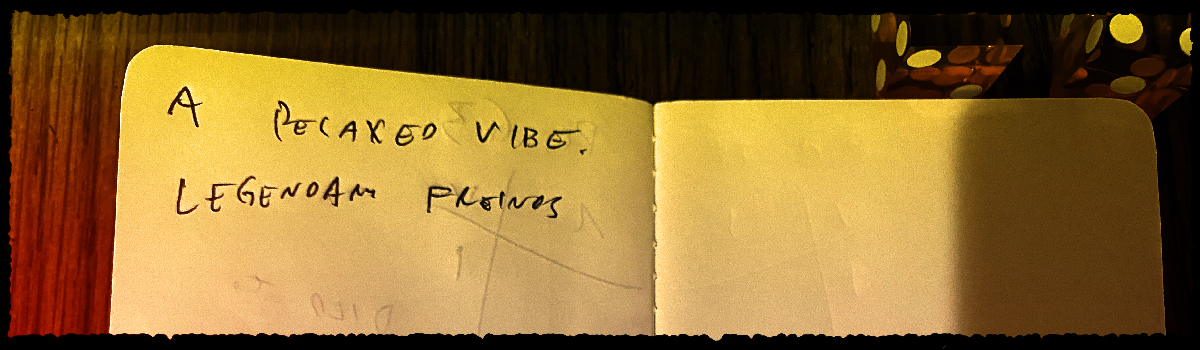 A RELAXED VIBE.
LEGENDARY FRIENDS